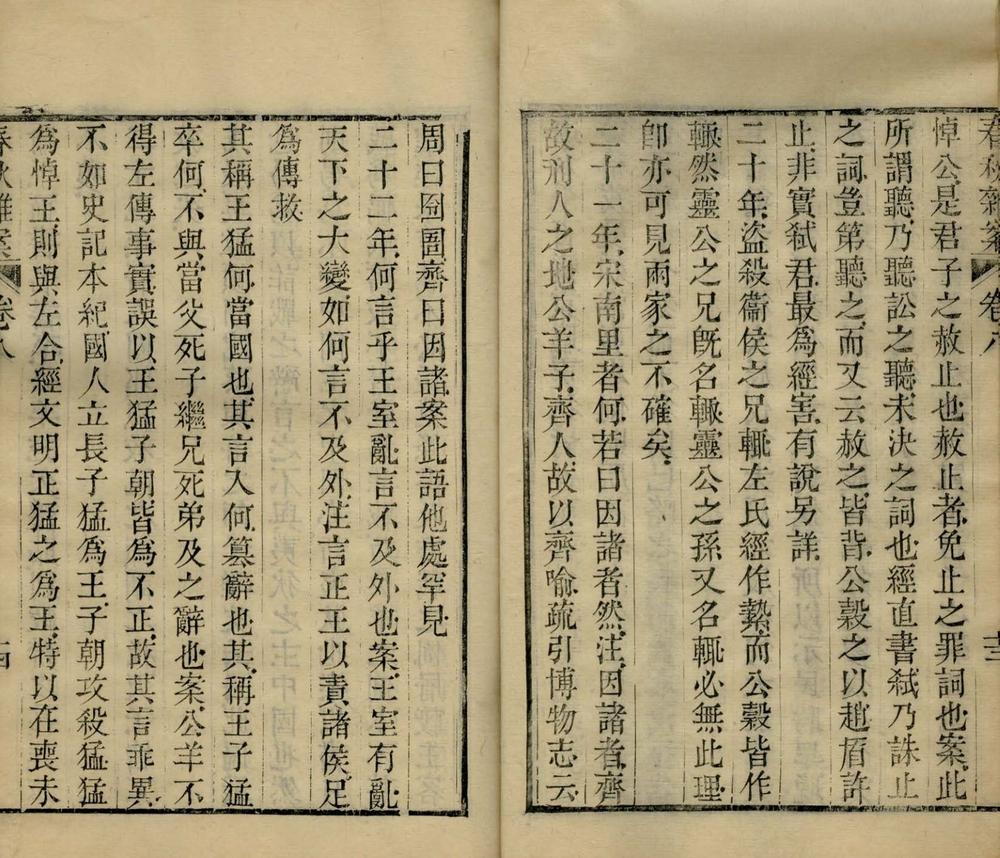 春秋雜案
卷八
十三
悼公是君子之赦止也赦止者免止之罪詞也案此
所謂聽乃聽訟之聽未決之詞也經直書弒乃誅止
之詞豈第聽之而又云赦之皆背公穀之以趙盾許
止非實弒君最爲經害有說另詳
二十年盜殺衞侯之兄輒左氏經作縶而公穀皆作
輒然靈公之兄旣名輒靈公之孫又名輒必無此理
卽亦可見兩家之不確矣
二十一年宋南里者何若曰因諸者然注因諸者齊
故刑人之地公羊子齊人故以齊喻疏引博物志云
周曰囹圄齊曰因諸案此語他處罕見
二十二年何言乎王室亂言不及外也案王室有亂
天下之大變如何言不及外注言正王以責諸侯足
爲傳救
其稱王猛何當國也其言入何篡辭也其稱王子猛
卒何不與當父死子繼兄死弟及之辭也案公羊不
得左傳事實誤以王猛子朝皆爲不正故其言乖異
不如史記本紀國人立長子猛爲王子朝攻殺猛猛
爲悼王則與左合經文明正猛之爲王特以在喪未
春秋雜案
卷八
十四